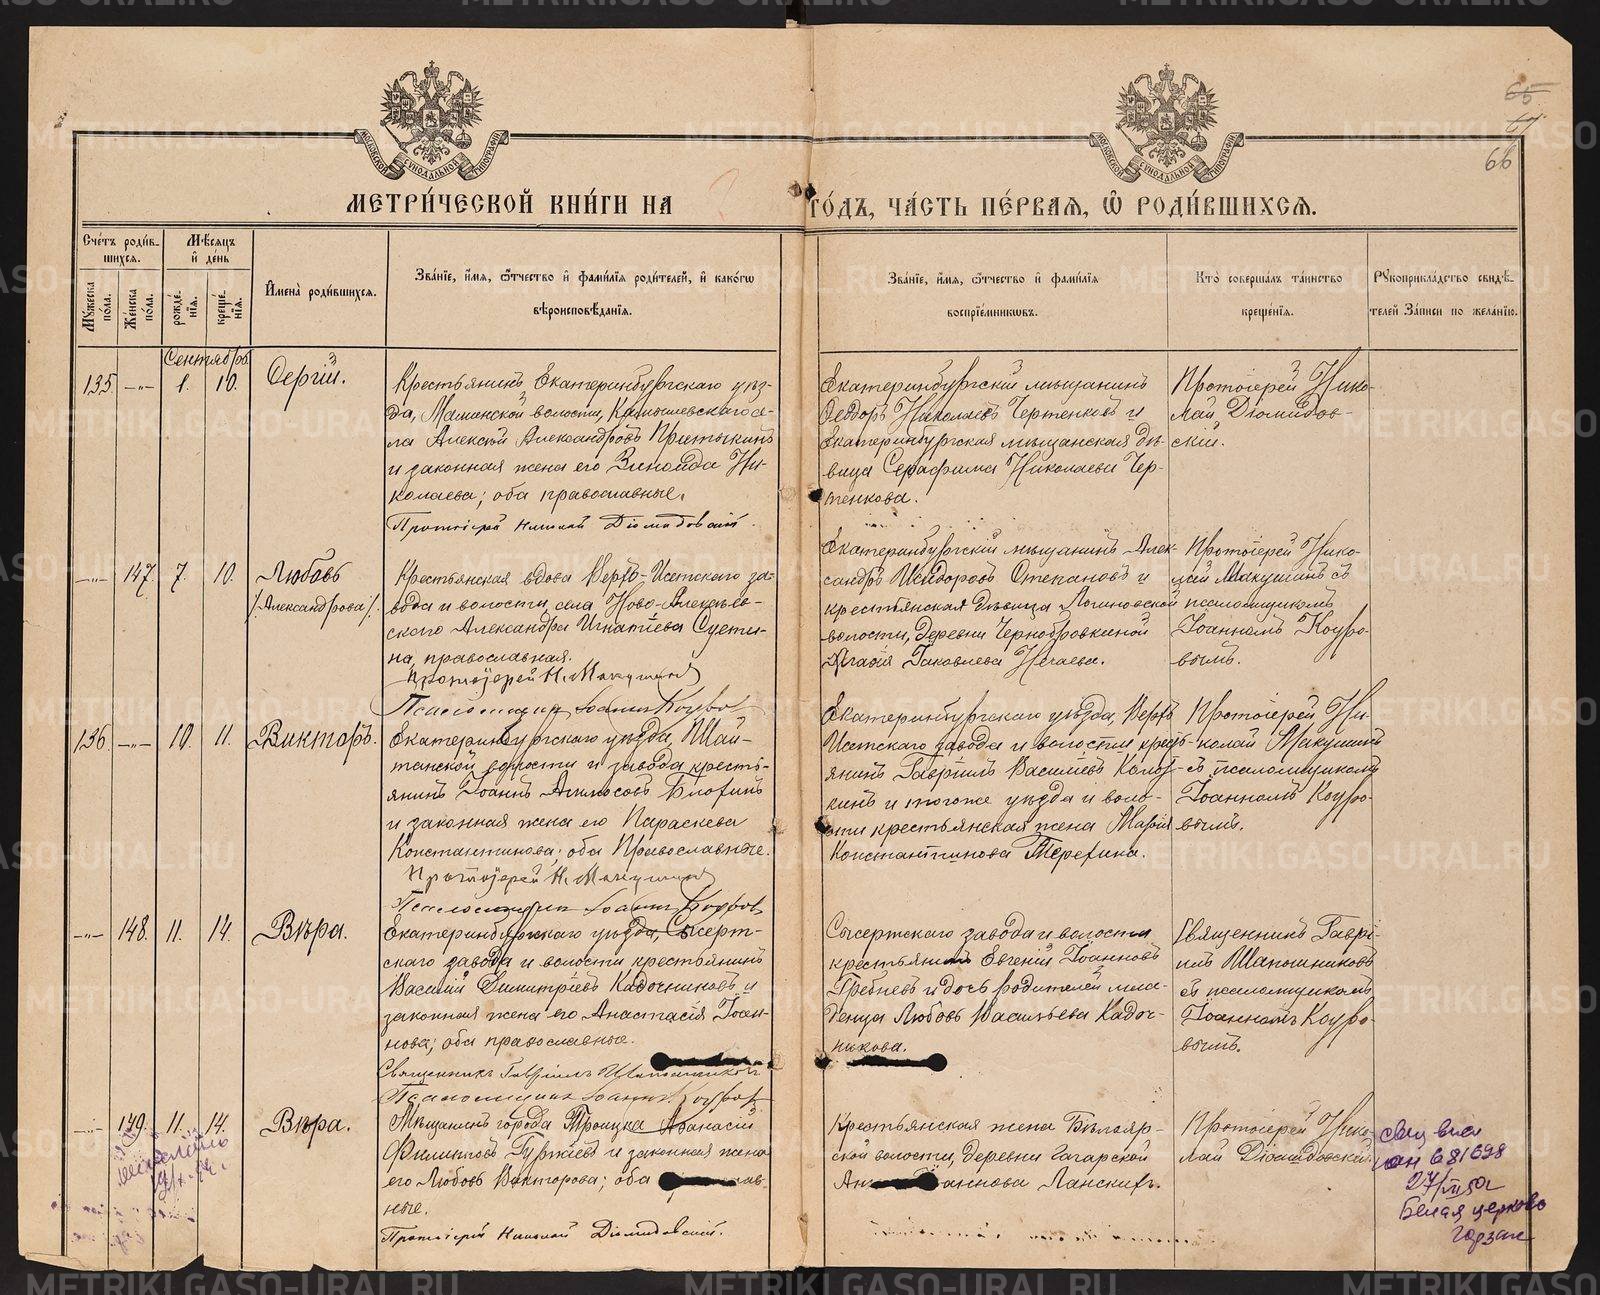 65
67
66
МОСКОВСКОЙ СѴНОДАЛЬНОЙ ТИПОГРАФІИ
МОСКОВСКОЙ СѴНОДАЛЬНОЙ ТИПОГРАФІИ
МЕТРИ́ЧЕСКОЙ КНИ́ГИ НА
ГО́ДЪ, ЧА́СТЬ ПЕ́РВАЯ, Ѡ РОДИ́ВШИХСЯ.
Сче́тъ роди́в-
шихся.
Мѣ́сяцъ
и҆ де́нь
Му́жеска
по́ла.
Же́нска
по́ла.
рожде́-
нїя.
креще́-
нїя.
И҆мена̀ роди́вшихся.
Зва́нїе, и҆́мя, ѻ҆́тчество и҆ фами́лїя роди́телей, и҆ како́гѡ
вѣроисповѣ́данїя.
Зва́нїе, и҆́мя, ѻ҆́тчество и҆ фами́лїя
воспрїе́мникѡвъ.
Кто̀ соверша́лъ та́инство
креще́нїя.
Рꙋкоприкла́дство свидѣ́-
телей за́писи по жела́нїю.
Сентябрь
135 —„— 1. 10.
Сергій.
Крестьянинъ Екатеринбургскаго уѣз-
да, Маминской волости, Камышевскаго се-
ла Алексій Александровъ Притыкинъ
и законная жена его Зинаида Ни-
колаева; оба православные.
Протоіерей Николай Діомидовскій.
Екатеринбургскій мѣщанинъ
Ѳеодоръ Николаевъ Чертенковъ и
Екатеринбургская мѣщанская дѣ-
вица Серафима Николаева Чер-
тенкова.
Протоіерей Нико-
лай Діомидов-
скій.
—„— 147. 7. 10.
Любовь
/Александрова/.
Крестьянская вдова Верхъ-Исетскаго за-
вода и волости, села Ново-Алексѣев-
скаго Александра Игнатіева Суети-
на, православная.
Протоіерей Н. Макушинъ
Псаломщикъ Іоаннъ Коуровъ
Екатеринбургскій мѣщанинъ Алек-
сандръ Исидоровъ Степановъ и
крестьянская дѣвица Логиновской
волости, деревни Чернобровкиной
Агаѳія Іаковлева Нечаева.
Протоіерей Нико-
лай Макушинъ съ
псаломщикомъ
Іоанномъ Коуро-
вымъ.
136. —„— 10. 11.
Викторъ.
Екатеринбургскаго уѣзда, Шай-
танской волости и завода кресть-
янинъ Іоаннъ
и законная жена его Параскева
Константинова; оба Православные.
Протоіерей Н. Макушинъ
Псаломщикъ Іоаннъ Коуровъ
Екатеринбургскаго уѣзда, Верхъ
Исетскаго завода и волости кресть-
янинъ Гавріилъ Василіевъ
и тогоже уѣзда и воло-
сти крестьянская жена Марія
Константинова
Протоіерей Ни-
колай Макушинъ
съ псаломщикомъ
Іоанномъ Коуро-
вымъ.
—„— 148. 11. 14.
Вѣра.
Екатеринбургскаго уѣзда, Сысерт-
скаго завода и волости крестьянинъ
Василій Димитріевъ Кадочниковъ и
законная жена его Анастасія Іоан-
нова; оба православные.
Священникъ Гавріилъ Шапошниковъ
Псаломщикъ Іоаннъ Коуровъ
Сысертскаго завода и волости
крестьянинъ Евгеній Іоанновъ
Гребневъ и дочь родителей мла-
денца Любовь Васильева Кадоч-
никова.
Священникъ Гаврі-
илъ Шапошниковъ
съ псаломщикомъ
Іоанномъ Коуро-
вымъ.
—„— 149. 11. 14.
Вѣра.
Мѣщанинъ города Троицка Аѳанасій
Филипповъ и законная жена
его Любовь Викторова; оба
ные.
Протоіерей Николай Діомидовскій.
Крестьянская жена Бѣлояр-
ской волости, деревни Гагарской
Протоіерей Нико-
лай Діомидовскій.
681698
Белая церковь